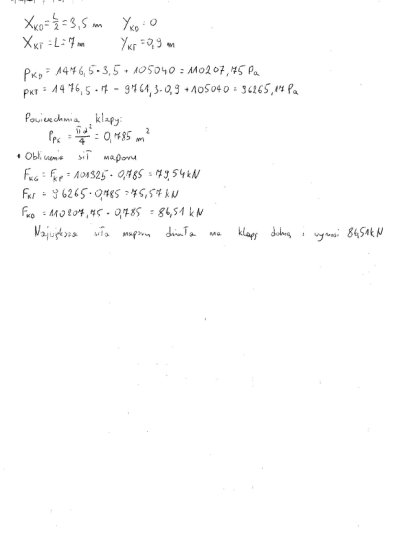 X_KD = L/2 = 3,5 m Y_KD = 0
X_KT = L = 7 m Y_KT = 0,9 m
P_KD = 1476,5 · 3,5 + 105040 = 110207,75 Pa
P_KT = 1476,5 · 7 - 9761,3 · 0,9 + 105040 = 96265,17 Pa
Powierzchnia klapy:
= πd²/4 = 0,785 m²
• Obliczenie sił naporu
F_KG = F_KP = 101325 · 0,785 = 79,54 kN
F_KT = 96265 · 0,785 = 75,57 kN
F_KD = 110207,75 · 0,785 = 86,51 kN
Największa siła naporu działa na klapę dolną i wynosi 86,51 kN